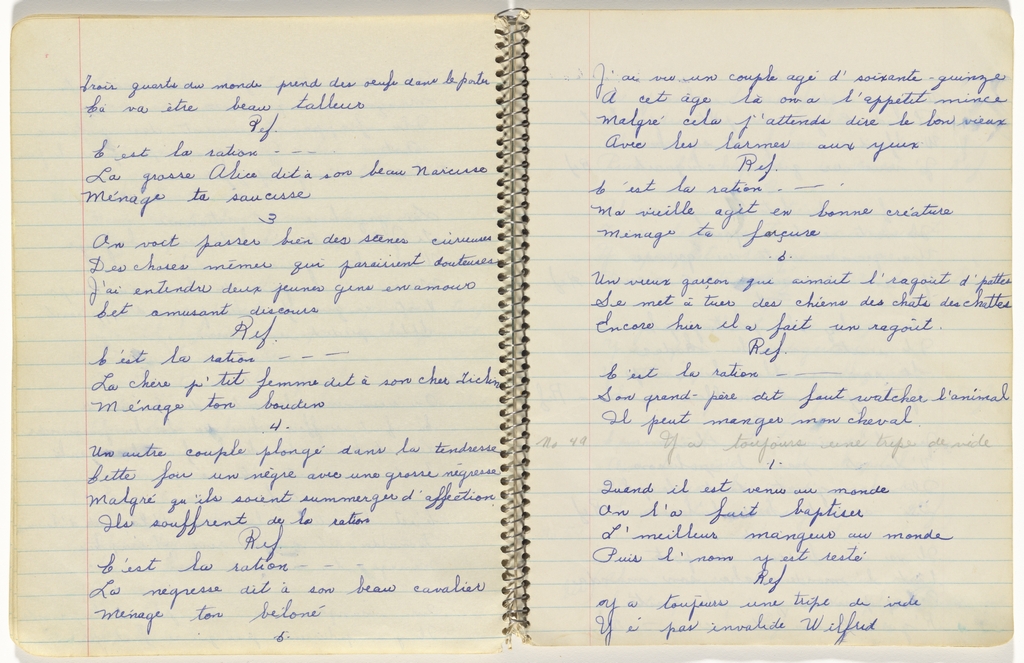 Trois quarts du monde prend des oeufs dans le porter
Ca va être beau talleur
Ref.
C'est la ration - - - -
La grosse Alice dit à son beau Narcisse
Ménage ta saucisse
3
On voit passer bien des scènes curieuses
Des choses mêmes qui paraissent douteuses
J'ai entendu deux jeunes gens en amour
Cet amusant discours
Ref.
C'est la ration - - —
La chère p'tit femme dit à son cher
Ménage ton boudin
.4.
Un autre couple plongé dans la tendresse
Cette fois un nègre avec une grosse négresse
Malgré qu'ils soient summerger d'affection
Ils souffrent de la ration
Ref.
C'est la ration - - -
La negresse dit à son beau cavalier
Ménage ton béloné
5.
J'ai vu un couple agé d'soixante-quinze
A cet âge là on a l'appétit mince
Malgré cela j'attends dire le bon vieux
Avec les larmes aux yeux
Ref.
C'est la ration - — .
Ma vieille agit en bonne créature
Menage ta forçure
.6.
Un vieux garçon qui aimait l'ragoût d'pattes
Se met à tuer des chiens des chats des chattes
Encore hier il a fait un ragoût.
Ref.
C'est la ration - —
Son grand-père dit faut watcher l'animal
Il peut manger mon cheval.
No 49 Y a toujours une tripe de vide
1.
Quand il est venu au monde
On l'a fait baptiser
L'meilleur mangeur au monde
Puis l'nom y est resté
Ref
Y a toujours une tripe de vide
Y é pas invalide Wilfrid